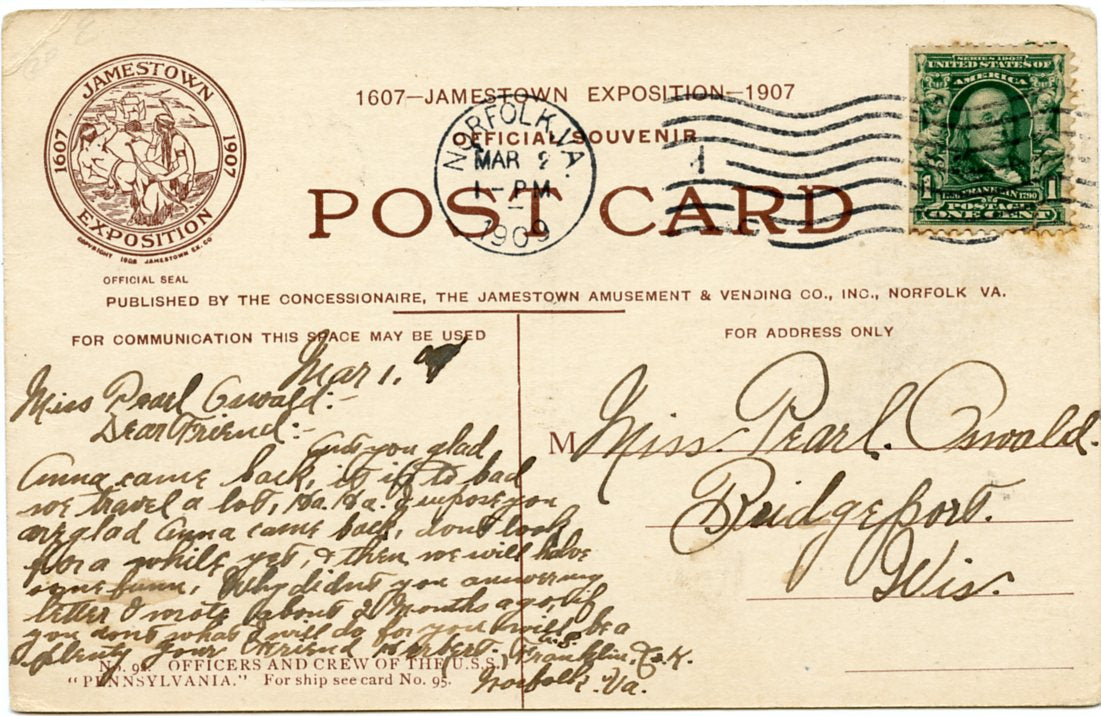 JAMESTOWN
1607 1907
EXPOSITION
COPYRIGHT 1906 JAMESTOWN EX. CO
OFFICIAL SEAL
1607—JAMESTOWN EXPOSITION—1907
OFFICIAL SOUVENIR
POST CARD
NORFOLK, VA.
MAR
1-PM
1909
1
SERIES 1902
UNITED STATES OF
AMERICA
FRANKLIN 1790
POSTAGE
1 1
ONE CENT
PUBLISHED BY THE CONCESSIONAIRE, THE JAMESTOWN AMUSEMENT & VENDING CO., INC., NORFOLK VA.
FOR COMMUNICATION THIS SPACE MAY BE USED
Mar 1.
Miss Pearl Oswald:-
Dear Friend:-
you glad
Anna came back, is to bad
we travel a lot, Ha. Ha. I supose you
are glad Anna came back, dont look
for a while yet, & then we will have
some funn, Why didnt you answer my
letter I wrote about 2 Months ago, if
you dont what I will do for you will be a
plenty Your Friend Herbert.
U.S.S. Franklin.
Norfolk. Va.
No. 9 OFFICERS AND CREW OF THE (U.S.S.)
"PENNSYLVANIA." For ship see card No. 95.
FOR ADDRESS ONLY
M Miss. Pearl. Oswald.
Bridgeport.
Wis.